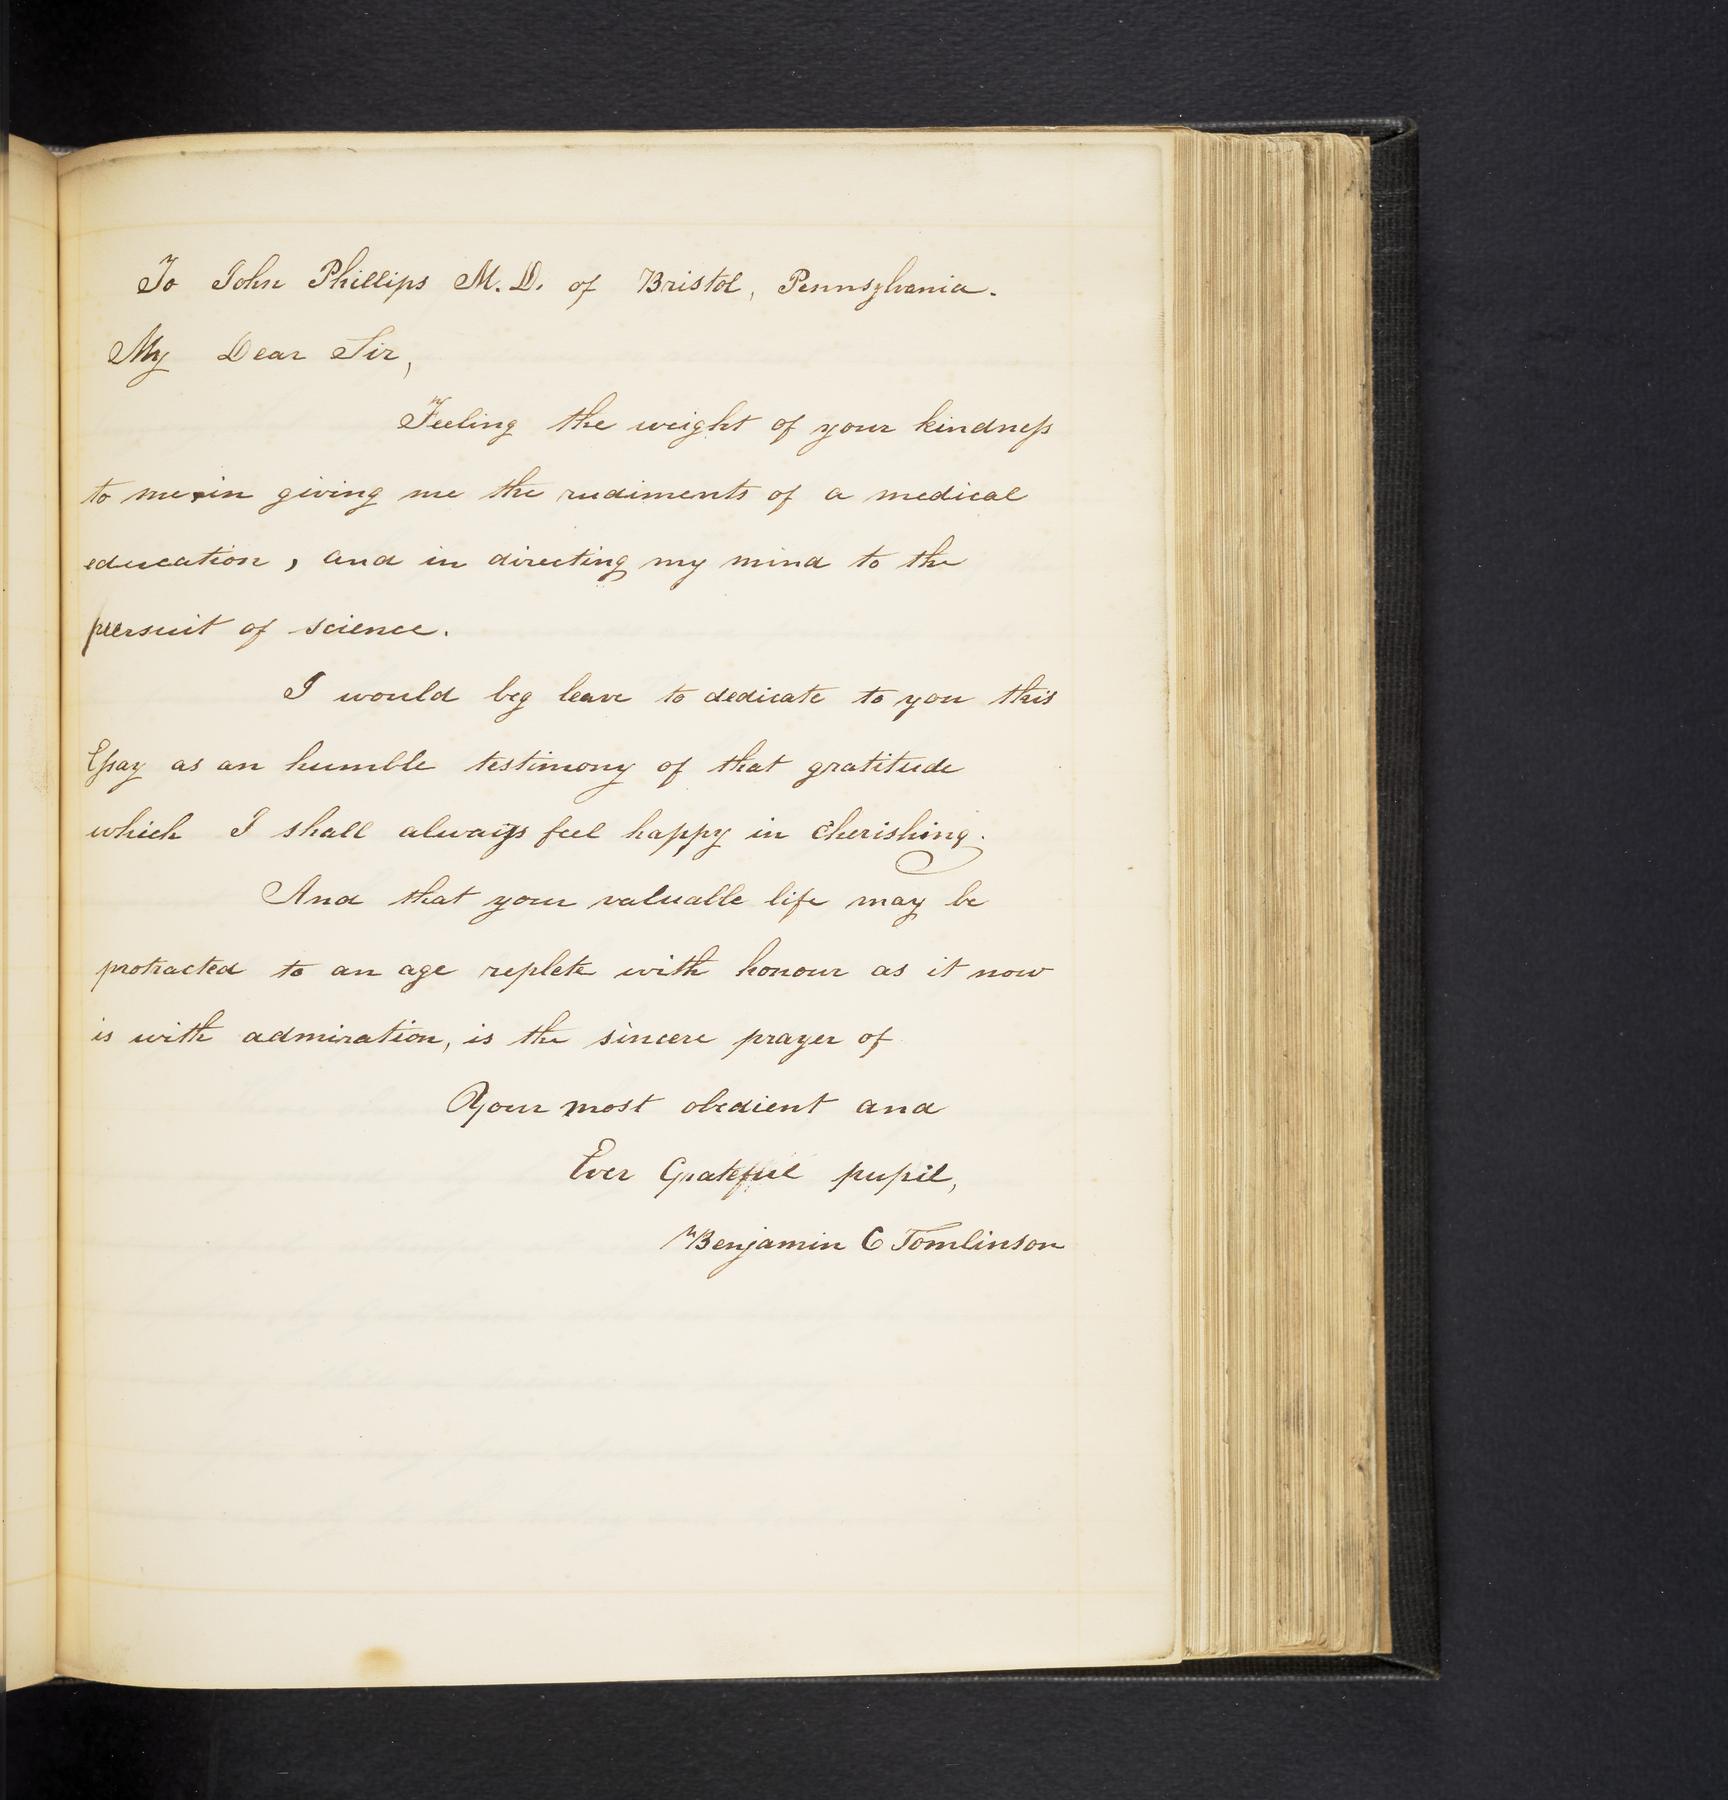 To John Phillips M. D. of Bristol, Pennsylvania.
My Dear Sir,
Feeling the weight of your kindneſs
to me in giving me the rudiments of a medical
education, and in directing my mind to the
pursuit of science.
I would beg leave to dedicate to you this
Eſsay as an humble testimony of that gratitude
which I shall always feel happy in cherishing.
And that your valuable life may be
protracted to an age replete with honour as it now
is with admiration, is the sincere prayer of
Your most obedient and
Ever Grateful pupil,
Benjamin C Tomlinson